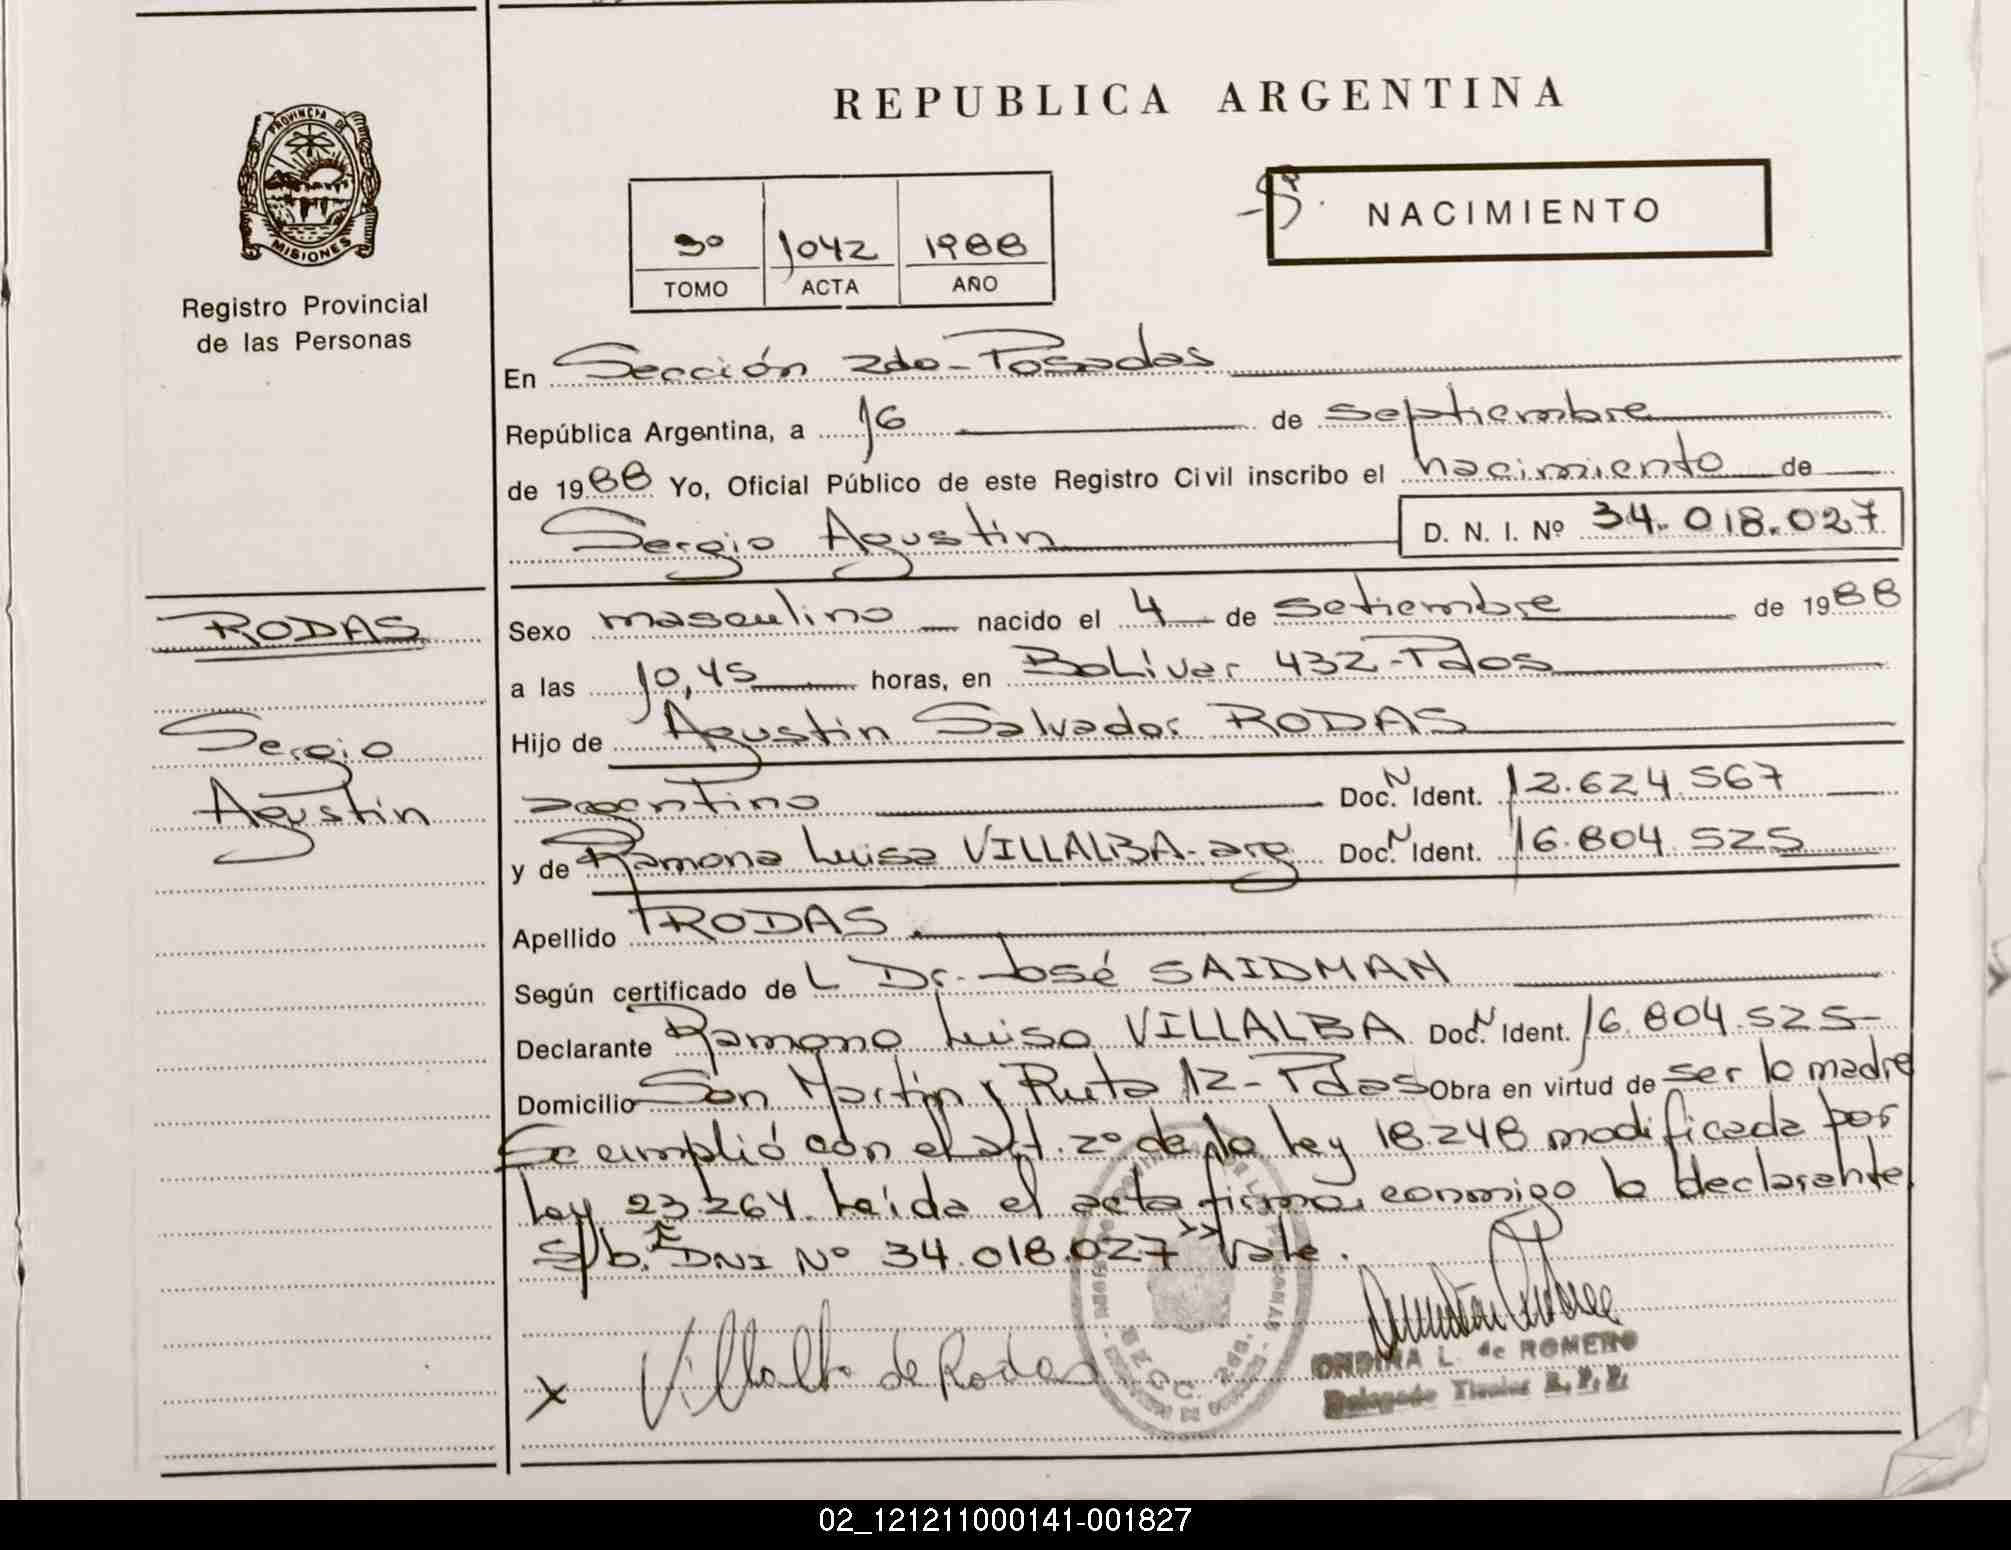 REPUBLICA ARGENTINA
PROVINCIA DE
MISIONES
Registro Provincial
de las Personas
NACIMIENTO
3º 1042 1988
TOMO ACTA AÑO
En Sección 2da-Posadas
República Argentina, a 16 de septiembre
de 1988 Yo, Oficial Público de este Registro Civil inscribo el nacimiento de
Sergio Agustín D. N. I. Nº 34.018.027
RODAS
Sergio
Agustín
Sexo masculino nacido el 4 de setiembre de 1988
a las 10,45 horas, en Bolívar 432-Pdas
Hijo de Agustín Salvador RODAS
argentino Doc. N Ident. 12.624.567
y de Ramona Luisa VILLALBA-arg Doc. N Ident. 16.804.525
Apellido RODAS
Según certificado de L Dr. José SAIDMAN
Declarante Ramona Luisa VILLALBA Doc. N Ident. 16.804.525
Domicilio San Martín y Ruta 12-Pdas Obra en virtud de ser la madre
Se cumplió con el art. 2º de la ley 18.248 modificada por
ley 23.264. Leída el acta firma conmigo la declarante
S/b. E DNI Nº 34.018.027 " Vale.
x Villalba de Rodas
SECC. 2da.
ONDINA L. de ROMERO
Delegado Titular R. P. P.
02_121211000141-001827